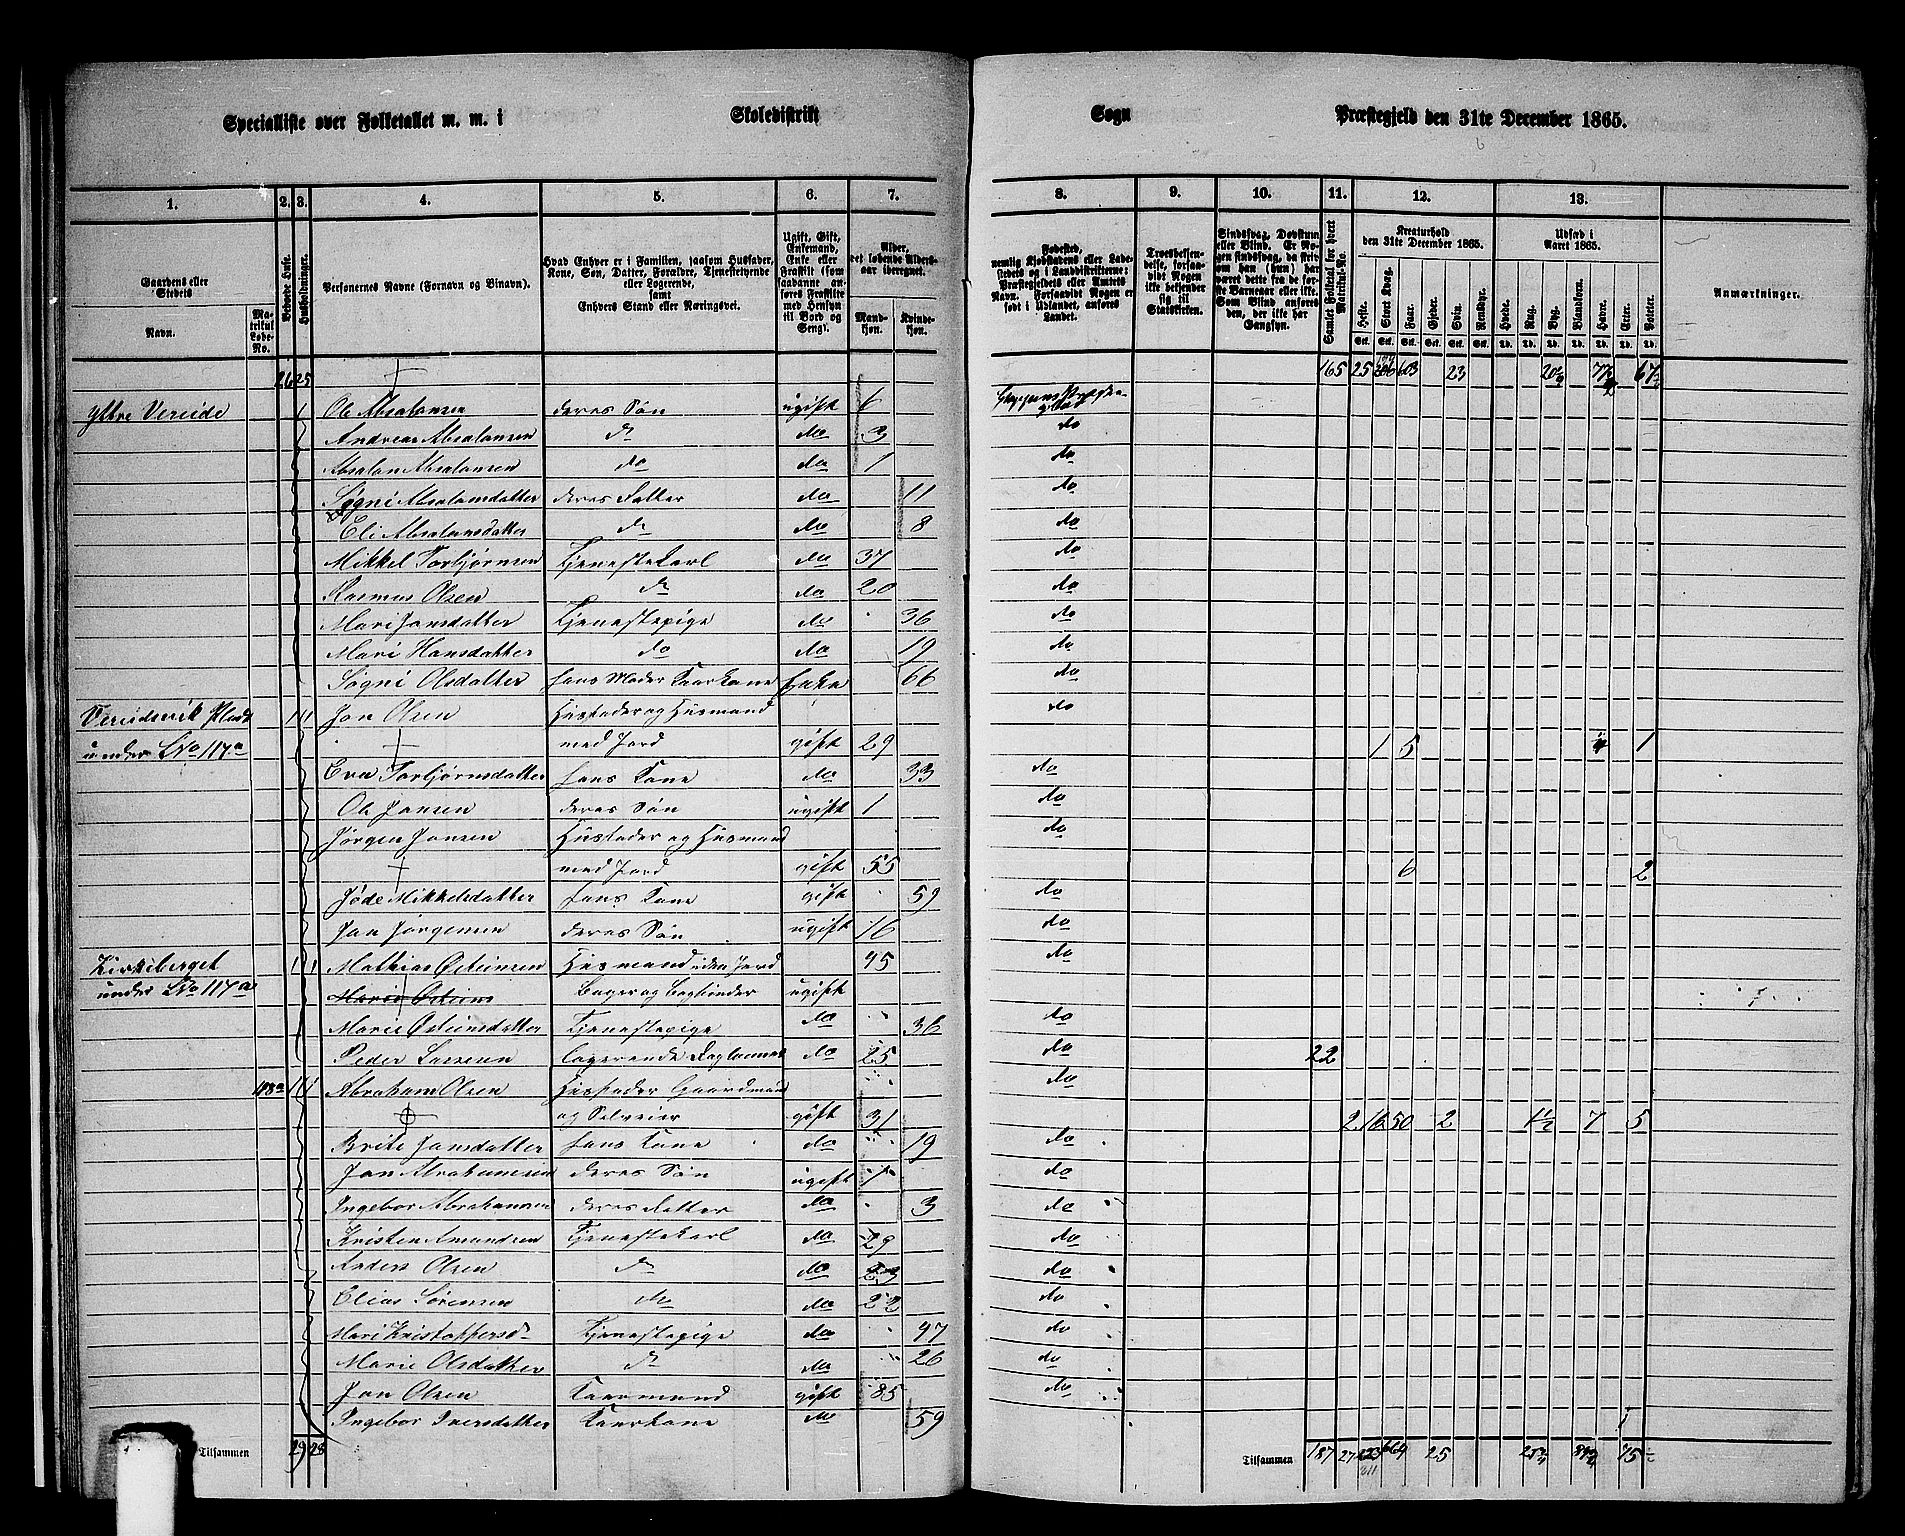 Specialliste over Folketallet m. m. i Skoledistrikt Sogn Præstegjeld den 31te December 1865.
1. 2. 3. 4. 5. 6. 7. 8. 9. 10. 11. 12. 13.
Gaardens eller Stedets
Navn.
Matrikul Løbe-No.
Beboede Huse.
Husholdninger.
Personernes Navne (Fornavn og Binavn).
Hvad Enhver er i Familien, saasom Husfader, Kone, Søn, Datter, Forældre, Tjenestetyende eller Logerende, samt Enhvers Stand eller Næringsvei.
Ugift, Gift, Enkemand, Enke eller Fraskilt (som saadanne anføres Fraskilte med Hensyn til Bord og Seng).
Alder, det løbende Alders-aar iberegnet.
Mandkjøn.
Kvindekjøn.
Fødested, nemlig Kjøbstadens eller Ladestedets og i Landdistrikterne: Præstegjeldets eller Amtets Navn. Forsaavidt Nogen er født i Udlandet, anføres Landet.
Troesbekjendelse, forsaavidt Nogen ikke bekjender sig til Statskirken.
Sindssvag, Døvstum eller Blind. Er Nogen sindssvag, da skrives om han (hun) har været dette fra de første Barneaar eller ikke. Som Blind anføres den, der ikke har Gangsyn.
Samlet Folketal for hvert Matrikul-No.
Kreaturhold den 31te December 1865.
Heste. Stort Kvæg. Faar. Gjeder. Svin. Rensdyr.
Udsæd i Aaret 1865.
Hvede. Rug. Byg. Blandkorn. Havre. Erter. Poteter.
Anmærkninger.
26 25 165 25 603 23
Yttre Vereide 1 Ole Absalonsen deres Søn ugift 6
Andreas Absalonsen do do 3 do
Absalon Absalonsen do do 1 do
Søgni Absalonsdatter deres Datter do 11 do
Eli Absalonsdatter do do 8 do
Mikkel Torbjørnsen Tjenestekarl do 37 do
Rasmus Olsen do do 20 do
Mari Jonsdatter Tjenestepige do 36 do
Mari Hansdatter do do 19 do
Søgni Olsdatter hans Moder Kaarkone Enke 66 do
Vereidsvik Plads 1 1 Jon Olsen Husfader og Husmand do
under LNo 117a med Jord gift 29 1 5 1
Eva Torbjørnsdatter hans Kone do 33 do
Ole Jonsen deres Søn ugift 1 do
Jørgen Jonsen Husfader og Husmand do
med Jord gift 55 6 2
Jøde Mikkelsdatter hans Kone gift 59 do
Jon Jørgensen deres Søn ugift 16 do
Kirkeberget 1 1 Mathias Østensen Husmand uden Jord 45 do
under LNo 117a Bager og Bogbinder ugift
Marie Østensdatter Tjenestepige do 36 do
Peder Larsen logerende Daglønner do 25 do 22
118a 1 1 Abraham Olsen Husfader Gaardmand do
og Selveier gift 31 2 16 50 2 1½ 7 5
Brite Jonsdatter hans Kone do 19 do
Jon Abrahamsen deres Søn ugift 1 do
Ingebor Abrahamsen deres Datter do 3 do
Kristen Amundsen Tjenestekarl do 29 do
Anders Olsen do do 23 do
Elias Sørensen do do 22 do
Mari Kristoffersd. Tjenestepige do 47 do
Marie Olsdatter do do 26 do
Jon Olsen Kaarmand gift 85 do
Ingebor Iversdatter Kaarkone do 59
Tilsammen 29 28 Tilsammen 187 27 664 25